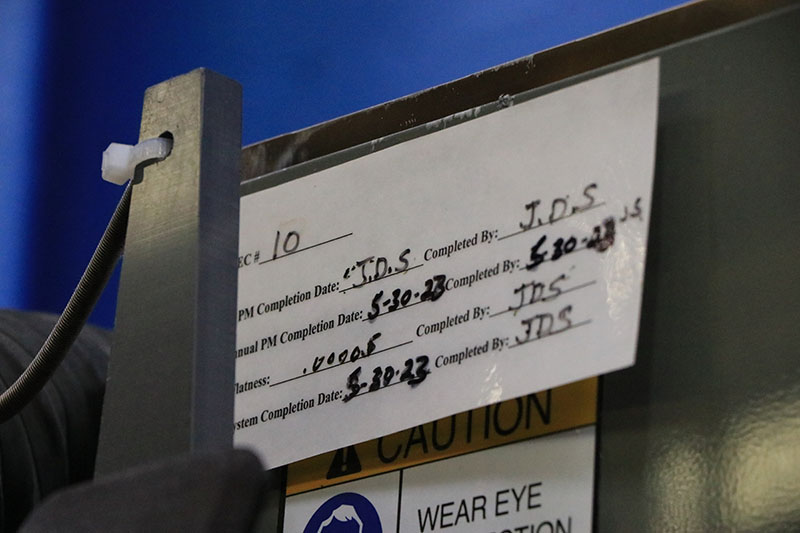 EC # 10
PM Completion Date: J.D.S Completed By: J.D.S
nual PM Completion Date: 5-30-23 Completed By: 5-30-23 J.S
latness: .00005 Completed By: JDS
ystem Completion Date: 5-30-23 Completed By: JDS
CAUTION
WEAR EYE